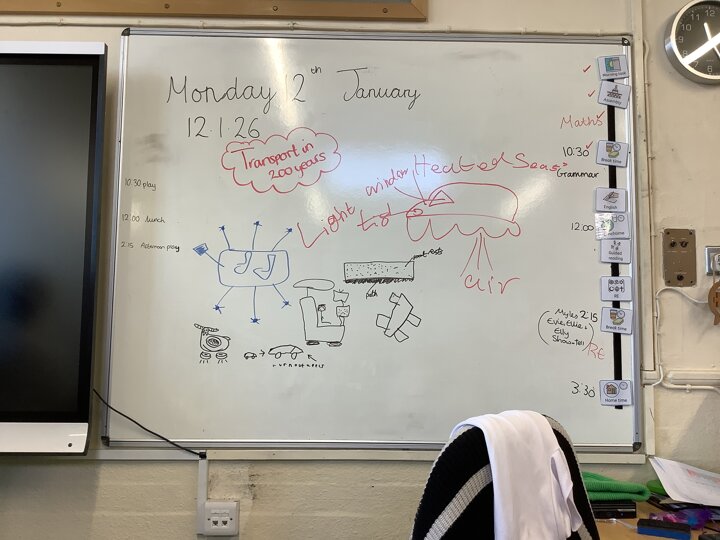 Monday 12th January
12.1.26
Transport in
200 years
10:30 play
12.00 lunch
2:15 Afternoon play
Light
window
Heated Seas
Lid
air
path
Maths
10:30
Grammar
12.00
Myles 2:15
Evie, Ellie,
Elly
Show+tell
RE
3:30
Morning task
Assembly
Break time
English
Guided
reading
RE
Break time
Home time